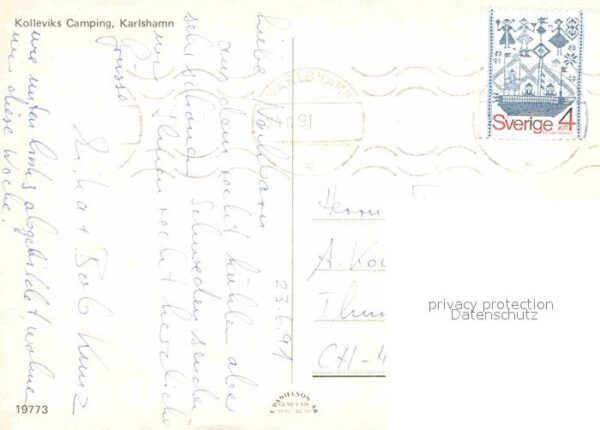 Kolleviks Camping, Karlshamn
KARLSHAMN
6.91
Sverige 4
KR
23.6.91
Liebe Nachbarn
aus dem recht kühlen aber
sehr schönen Schweden senden
wir Ihnen recht herzliche
Grüsse
Erika + Bob Kunz
wie unten links abgebildet, wohnen
wir diese Woche.
Herrn
A. Ko
Thu
CH-4
privacy protection
Datenschutz
19773
DANIELSON AB